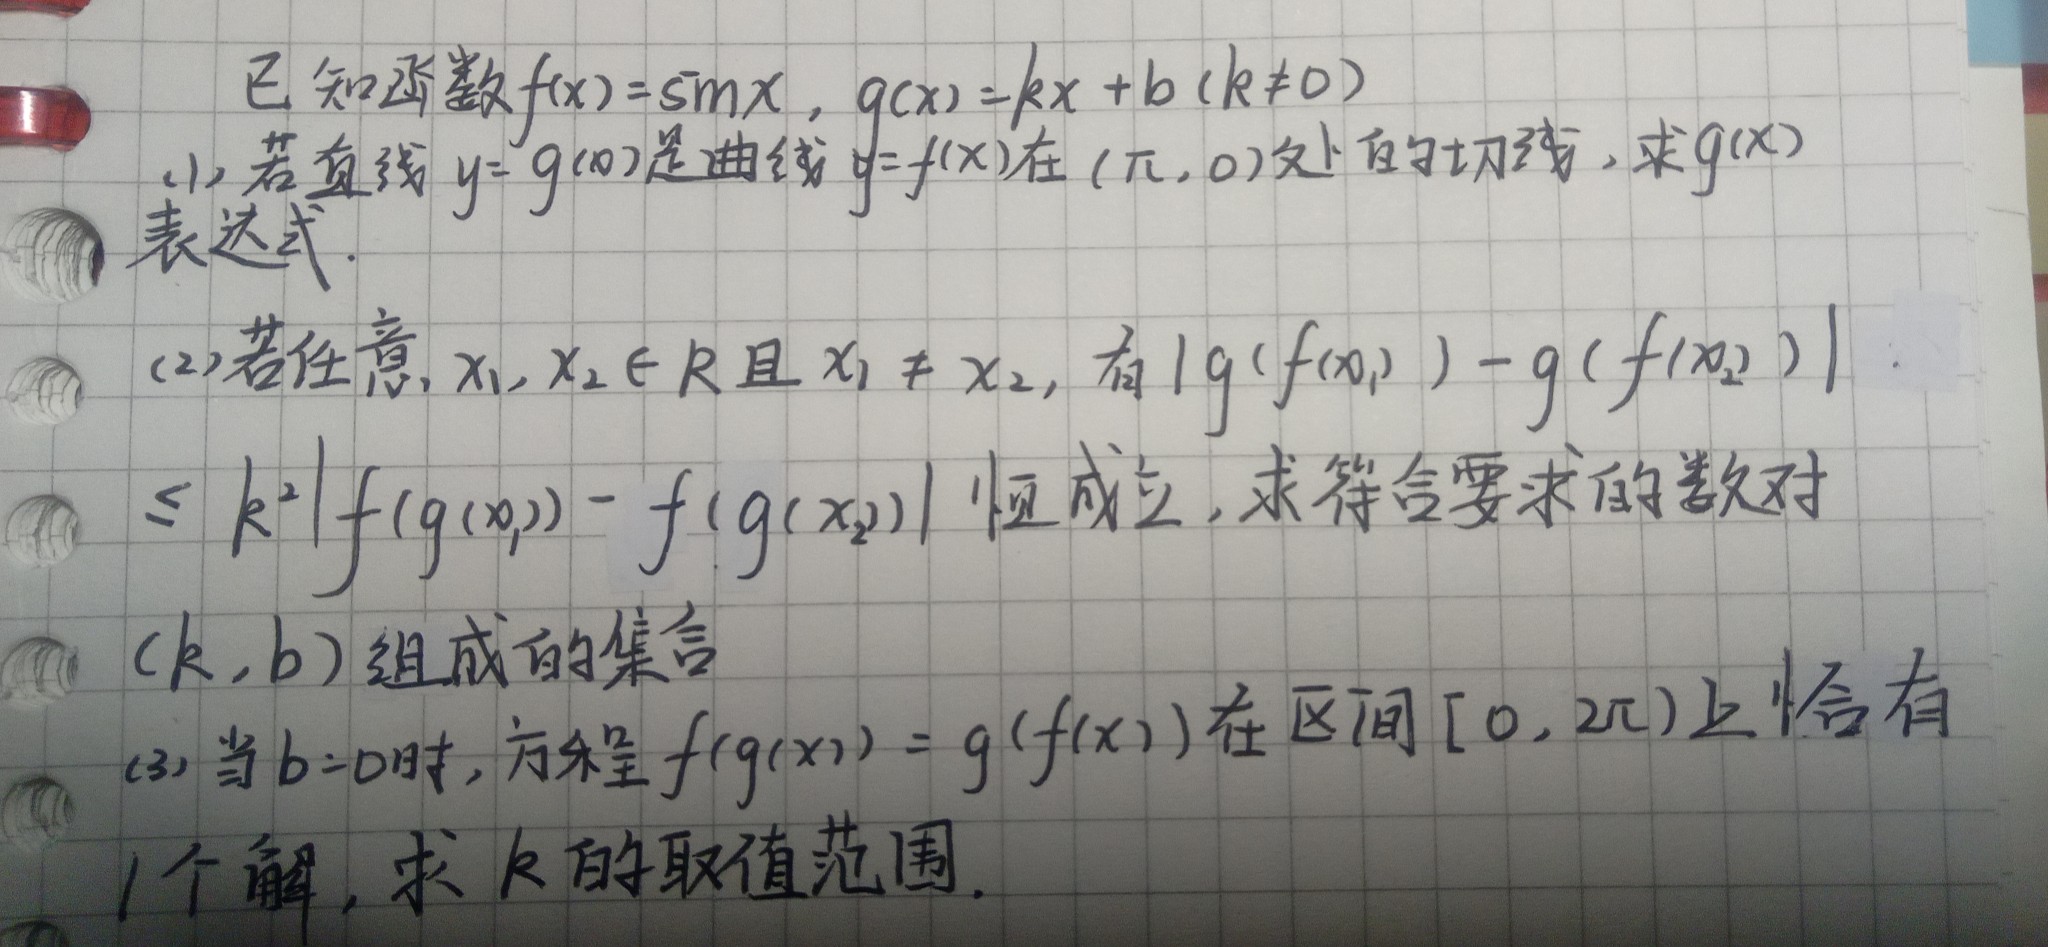 已知函数f(x)=sinx, g(x)=kx+b(k≠0)
(1)若直线y=g(x)是曲线y=f(x)在(π,0)处的切线,求g(x)
表达式.
(2)若任意x₁,x₂∈R且x₁≠x₂,有|g(f(x₁))-g(f(x₂))|
≤k²|f(g(x₁))-f(g(x₂))|恒成立,求符合要求的数对
(k,b)组成的集合
(3)当b=0时,方程f(g(x))=g(f(x))在区间[0,2π)上恰有
1个解,求k的取值范围.